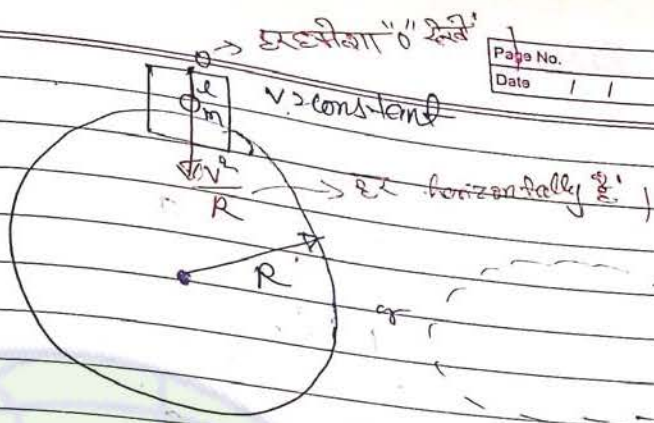 → हर हमेशा "0" रखेंगे
Page No.
Date / /
l
m
V → constant
V²
R
→ हर horizontally है।
R
or